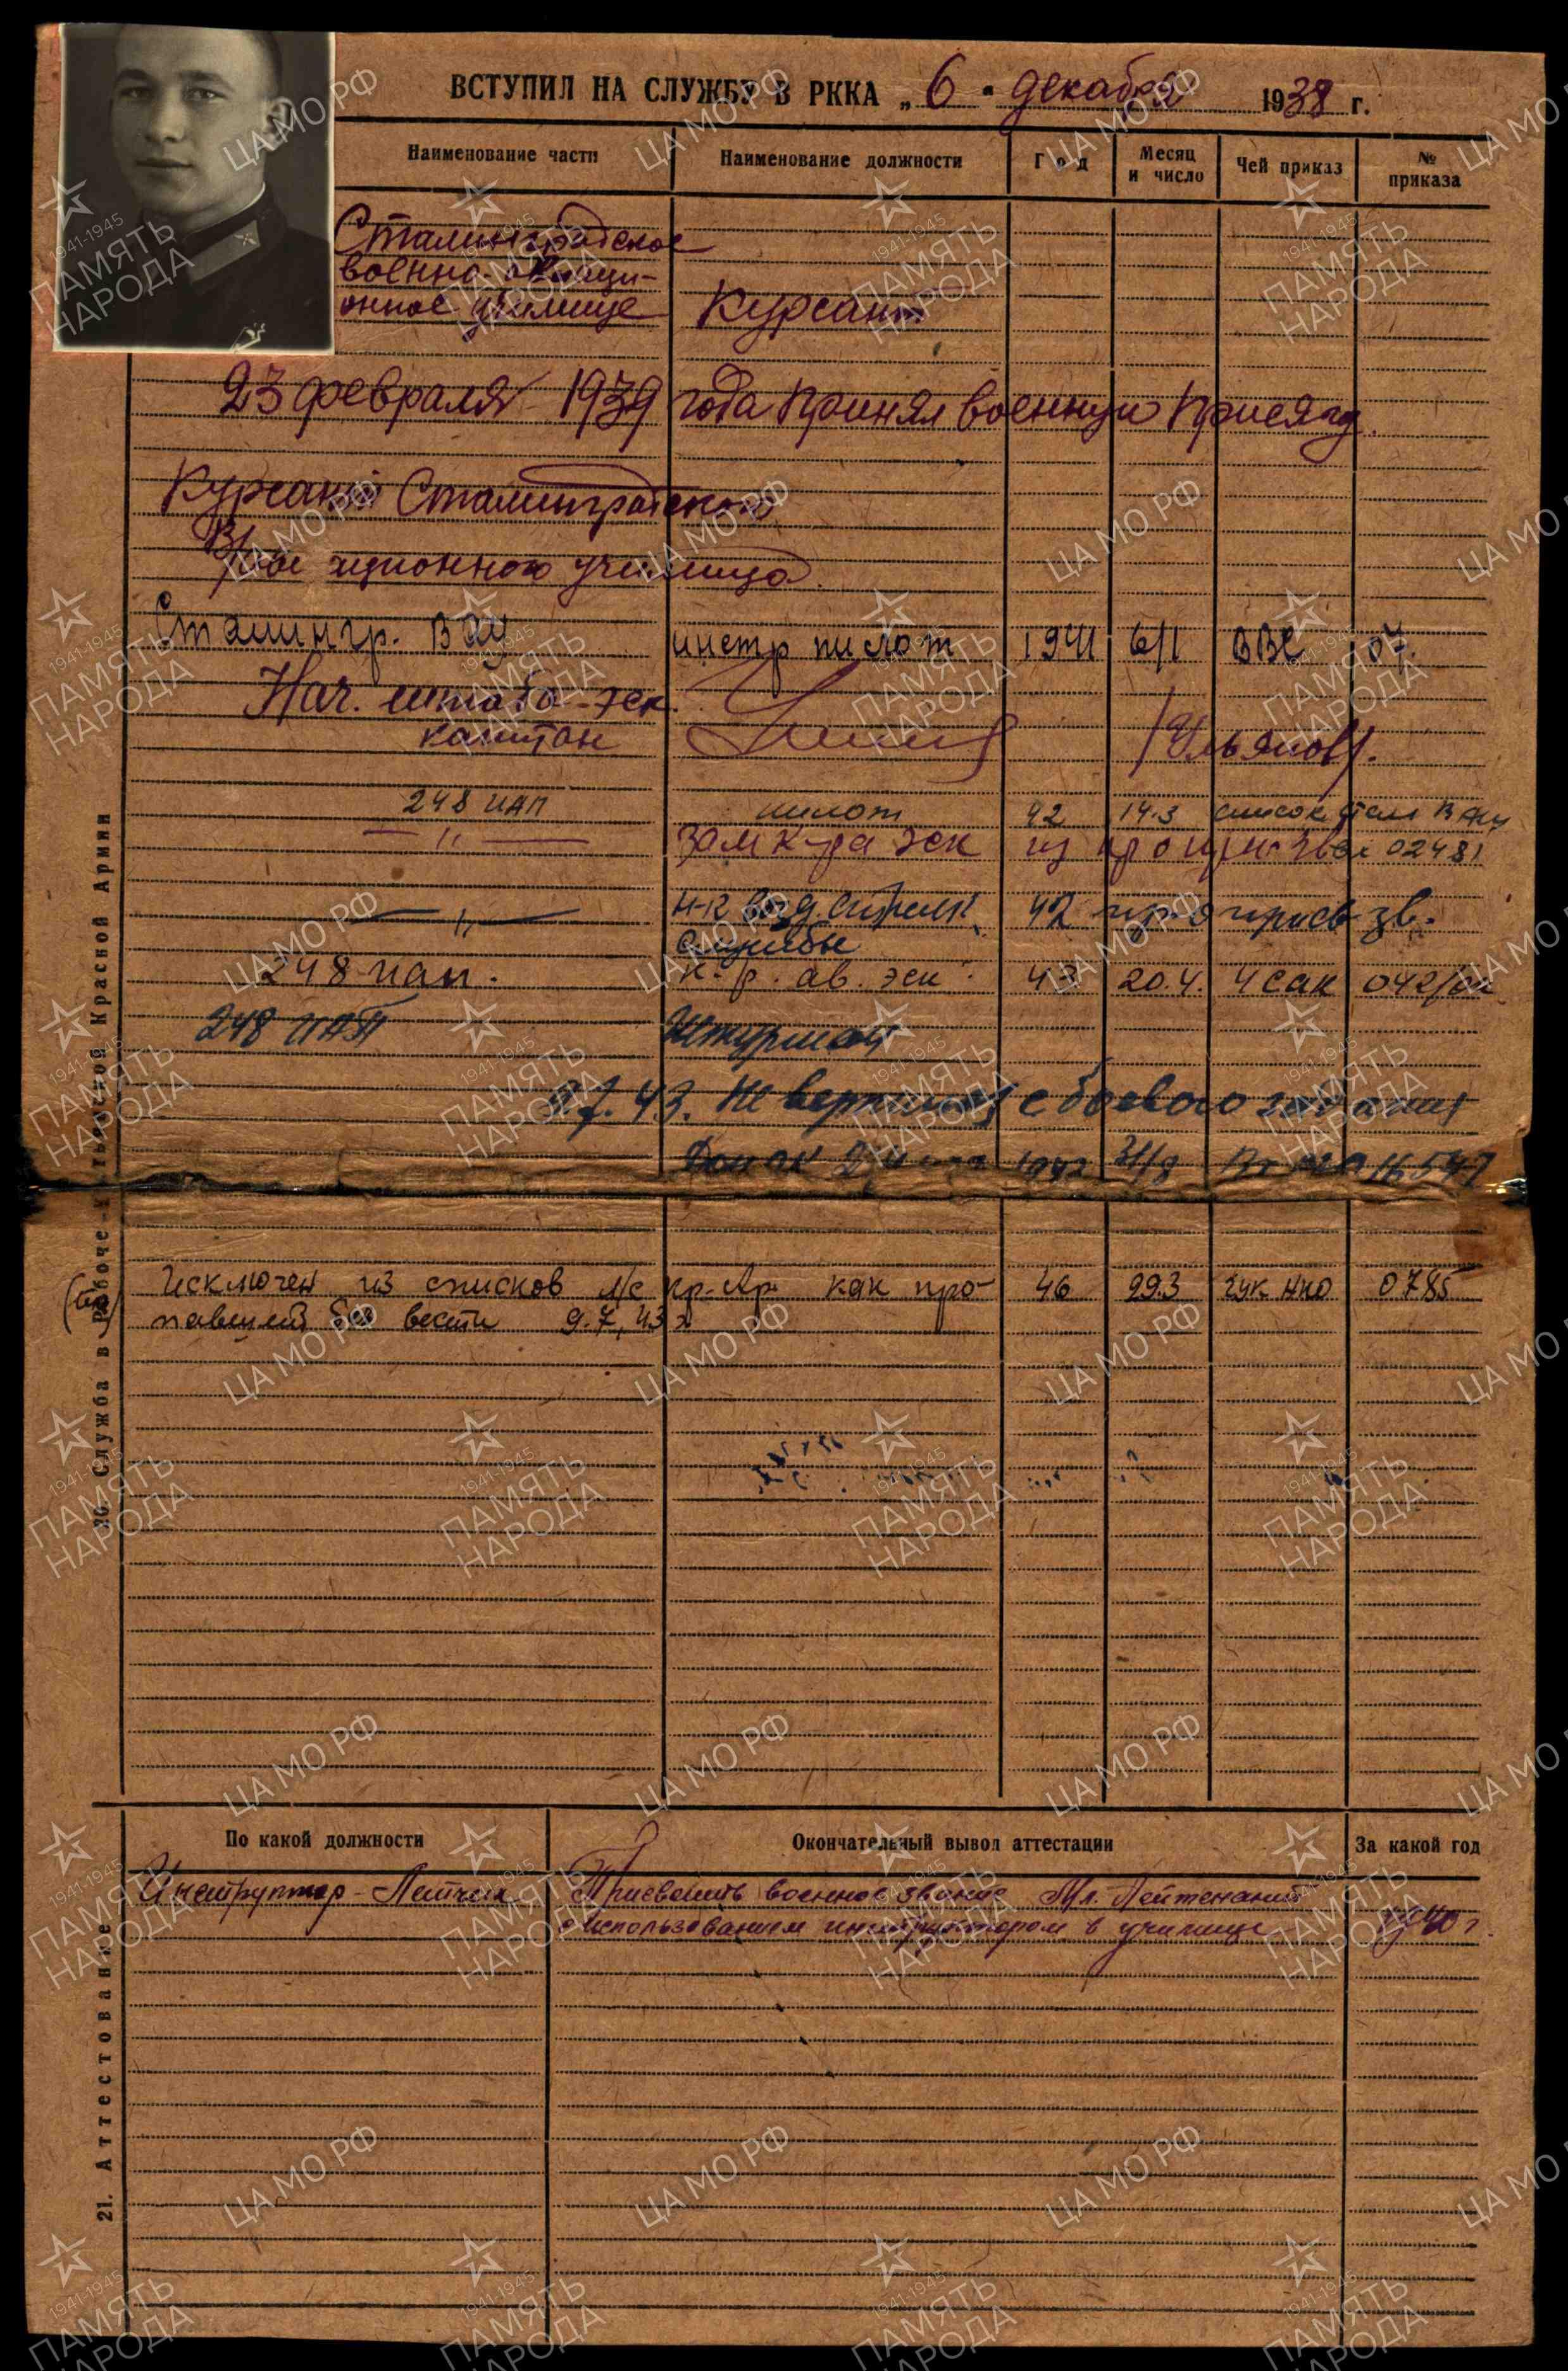 ВСТУПИЛ НА СЛУЖБУ В РККА „ 6 " декабря 1938 г.
Наименование части Наименование должности Год Месяц и число Чей приказ № приказа
Сталинградское
военно-авиаци-
онное училище Курсант
23 февраля 1939 года принял военную присягу.
Курсант Сталинградского
училища
Сталингр. ВАУ инстр пилот 1941 6/1 ВВС 07.
Нач. штаба эск.
капитан /Ульянов/.
248 ИАП пилот 42 14.3 список Стал ВАУ
— " — Зам к-ра эск из пр о присв. зв. 02481
— " — Н-к возд. стрелк. 42 пр о присв зв.
службы
248 иап. к-р. ав. эск. 43 20.4. 4 сак 042/
248 ИАП Штурман
9.7.43. Не вернулся с боевого задания
16547
Исключен из списков л/с Кр. Ар. как про- 46 29.3 ГУК НКО 0785
павший без вести 9.7.43 г
20. Служба в Рабоче-Крестьянской Красной Армии
По какой должности Окончательный вывод аттестации За какой год
Инструктор-Летчик Присвоить военное звание Мл. Лейтенант
с использованием инструктором в училище 1940 г.
21. Аттестование
ЦА МО РФ
1941-1945
ПАМЯТЬ
НАРОДА